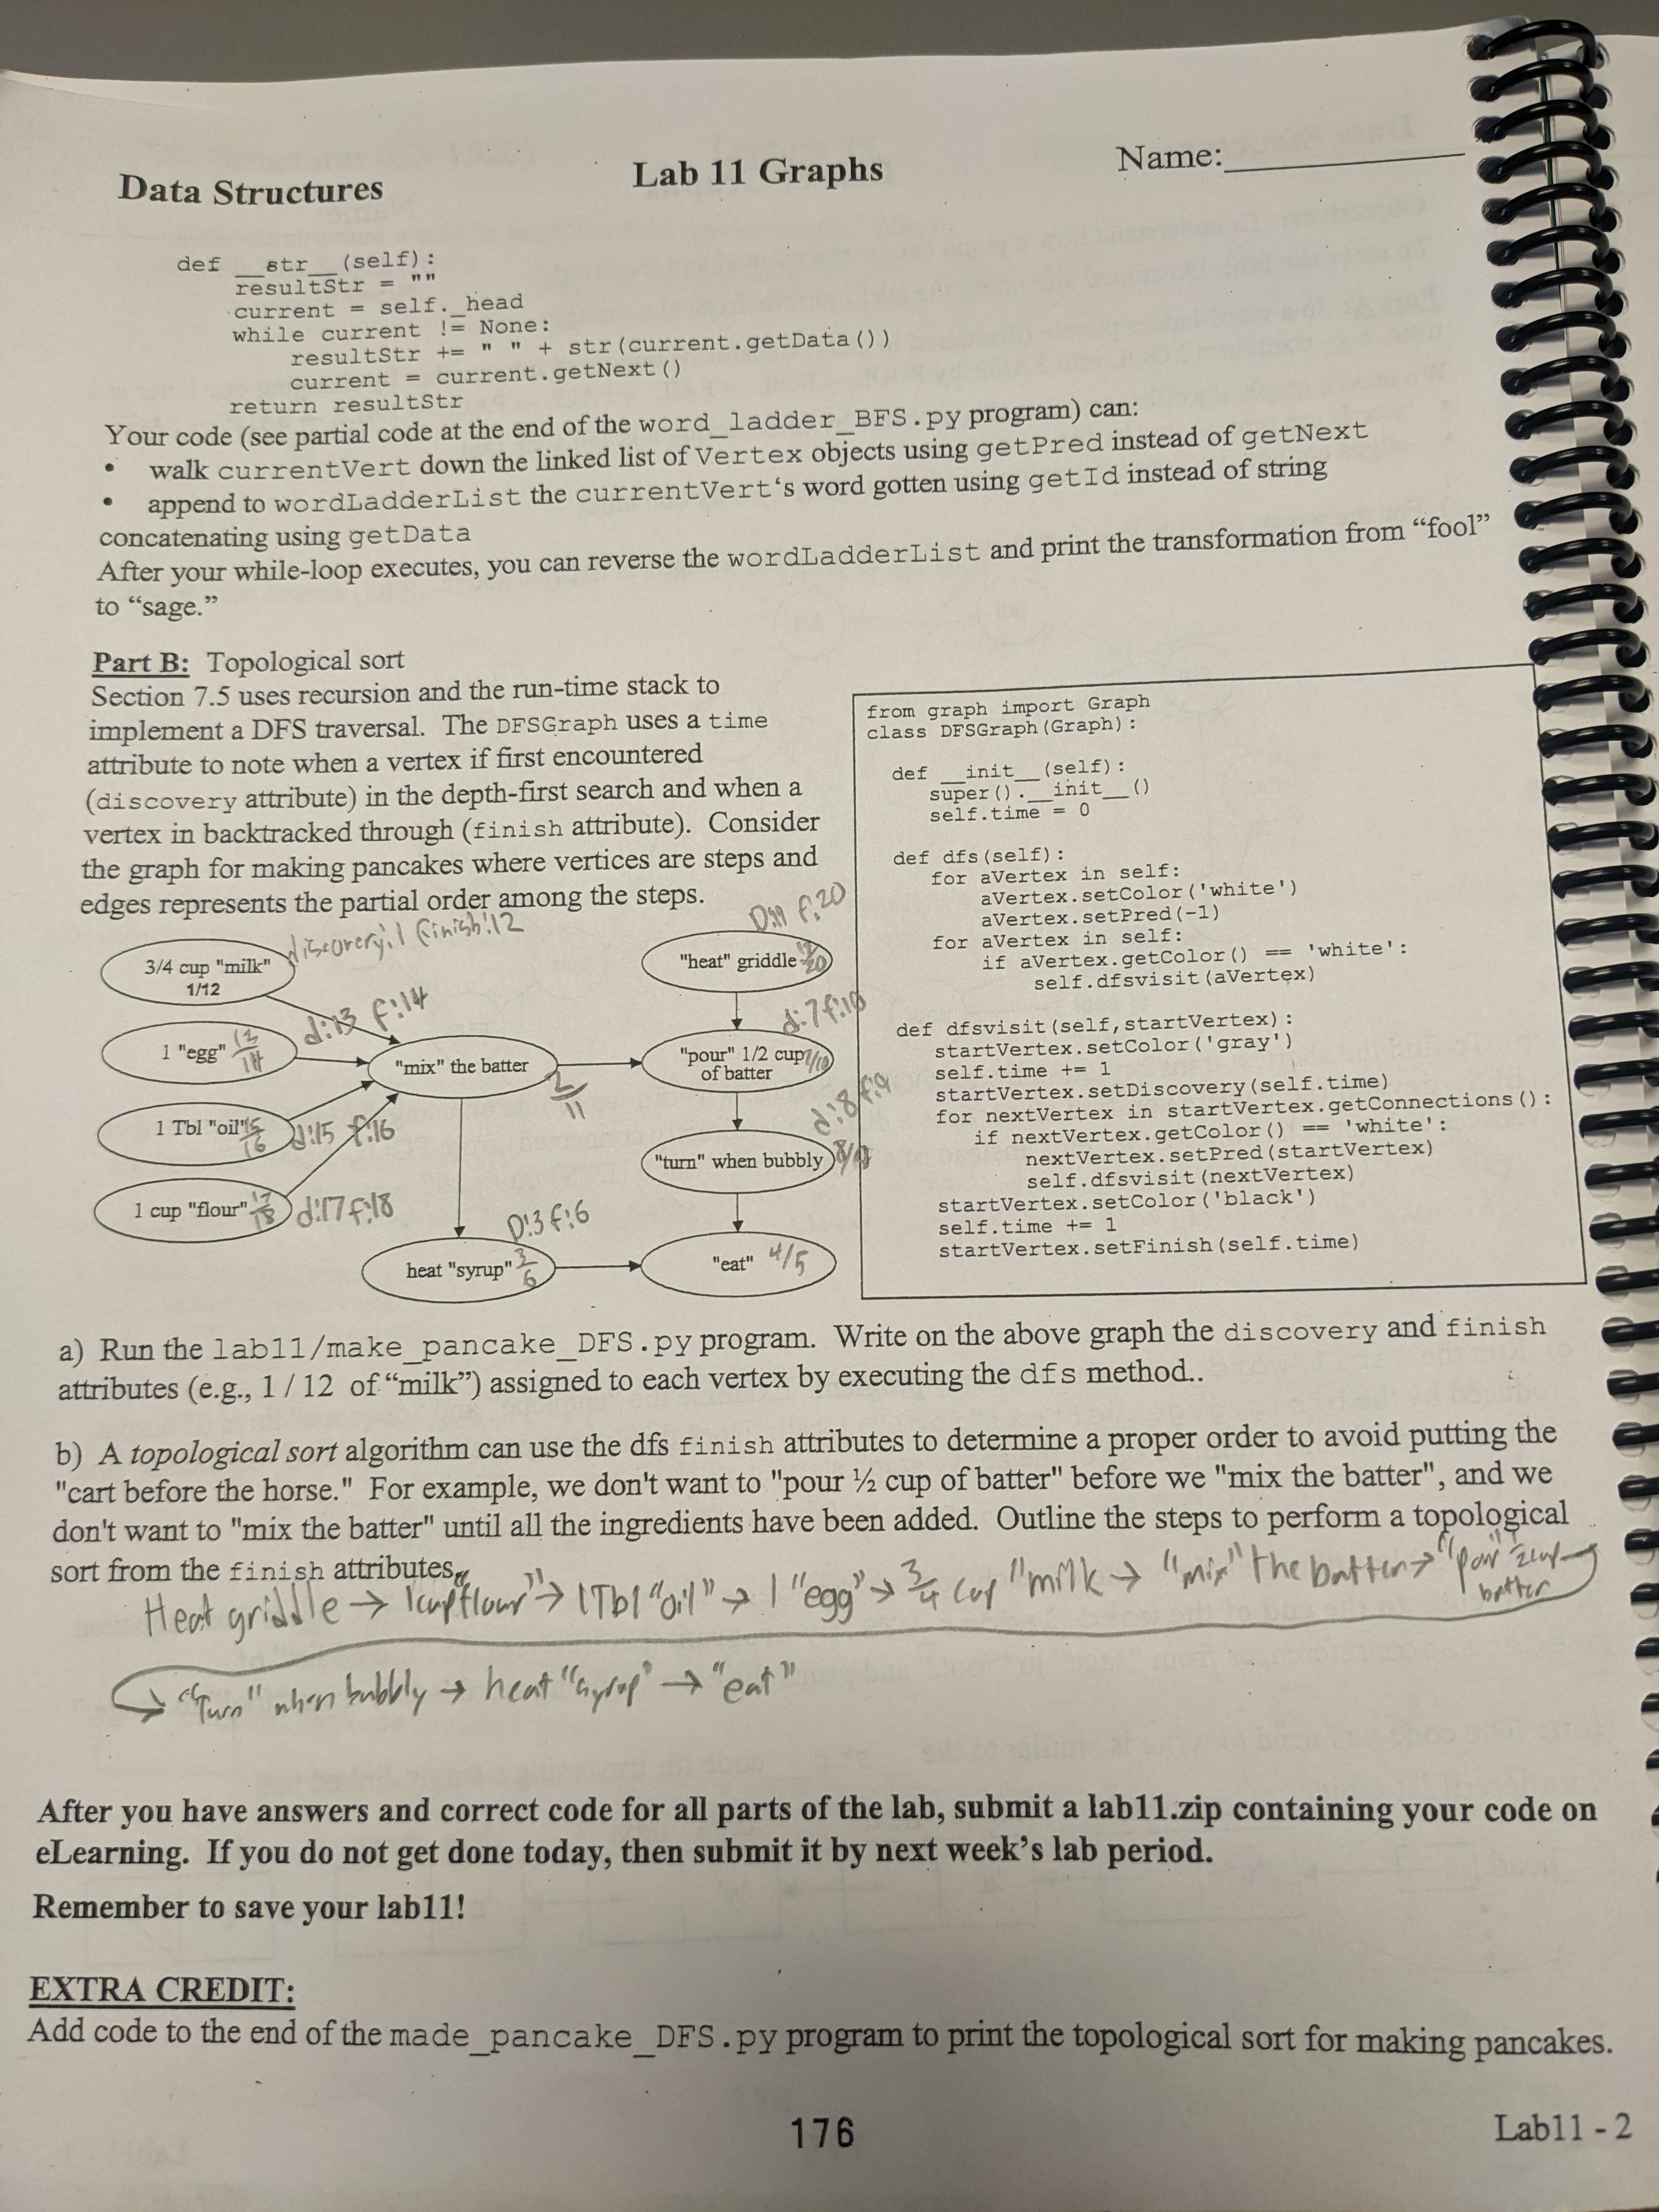 Data Structures
Lab 11 Graphs
Name:
def __str__(self):
resultStr = ""
current = self._head
while current != None:
resultStr += " " + str(current.getData())
current = current.getNext()
return resultStr
Your code (see partial code at the end of the word_ladder_BFS.py program) can:
• walk currentVert down the linked list of Vertex objects using getPred instead of getNext
• append to wordLadderList the currentVert‘s word gotten using getId instead of string
concatenating using getData
After your while-loop executes, you can reverse the wordLadderList and print the transformation from “fool”
to “sage.”
Part B: Topological sort
Section 7.5 uses recursion and the run-time stack to
implement a DFS traversal. The DFSGraph uses a time
attribute to note when a vertex if first encountered
(discovery attribute) in the depth-first search and when a
vertex in backtracked through (finish attribute). Consider
the graph for making pancakes where vertices are steps and
edges represents the partial order among the steps.
discovery:1 finish:12
3/4 cup "milk"
1/12
d:13 f:14
1 "egg" 13/14
"mix" the batter
2/11
1 Tbl "oil" 15/16
d:15 f:16
1 cup "flour" 17/18
d:17 f:18
D:3 f:6
heat "syrup" 3/6
f:20
"heat" griddle
d:7 f:10
"pour" 1/2 cup 7/10
of batter
d:8 f:9
"turn" when bubbly 8/9
"eat" 4/5
from graph import Graph
class DFSGraph(Graph):
def __init__(self):
super().__init__()
self.time = 0
def dfs(self):
for aVertex in self:
aVertex.setColor('white')
aVertex.setPred(-1)
for aVertex in self:
if aVertex.getColor() == 'white':
self.dfsvisit(aVertex)
def dfsvisit(self,startVertex):
startVertex.setColor('gray')
self.time += 1
startVertex.setDiscovery(self.time)
for nextVertex in startVertex.getConnections():
if nextVertex.getColor() == 'white':
nextVertex.setPred(startVertex)
self.dfsvisit(nextVertex)
startVertex.setColor('black')
self.time += 1
startVertex.setFinish(self.time)
a) Run the lab11/make_pancake_DFS.py program. Write on the above graph the discovery and finish
attributes (e.g., 1 / 12 of “milk”) assigned to each vertex by executing the dfs method..
b) A topological sort algorithm can use the dfs finish attributes to determine a proper order to avoid putting the
"cart before the horse." For example, we don't want to "pour ½ cup of batter" before we "mix the batter", and we
don't want to "mix the batter" until all the ingredients have been added. Outline the steps to perform a topological
sort from the finish attributes.
Heat griddle → 1 cup flour" → 1 Tbl "oil" → 1 "egg" → 3/4 cup "milk → "mix" the batter → "pour" cup
batter
"Turn" when bubbly → heat "syrup" → "eat"
After you have answers and correct code for all parts of the lab, submit a lab11.zip containing your code on
eLearning. If you do not get done today, then submit it by next week’s lab period.
Remember to save your lab11!
EXTRA CREDIT:
Add code to the end of the made_pancake_DFS.py program to print the topological sort for making pancakes.
176
Lab11 - 2